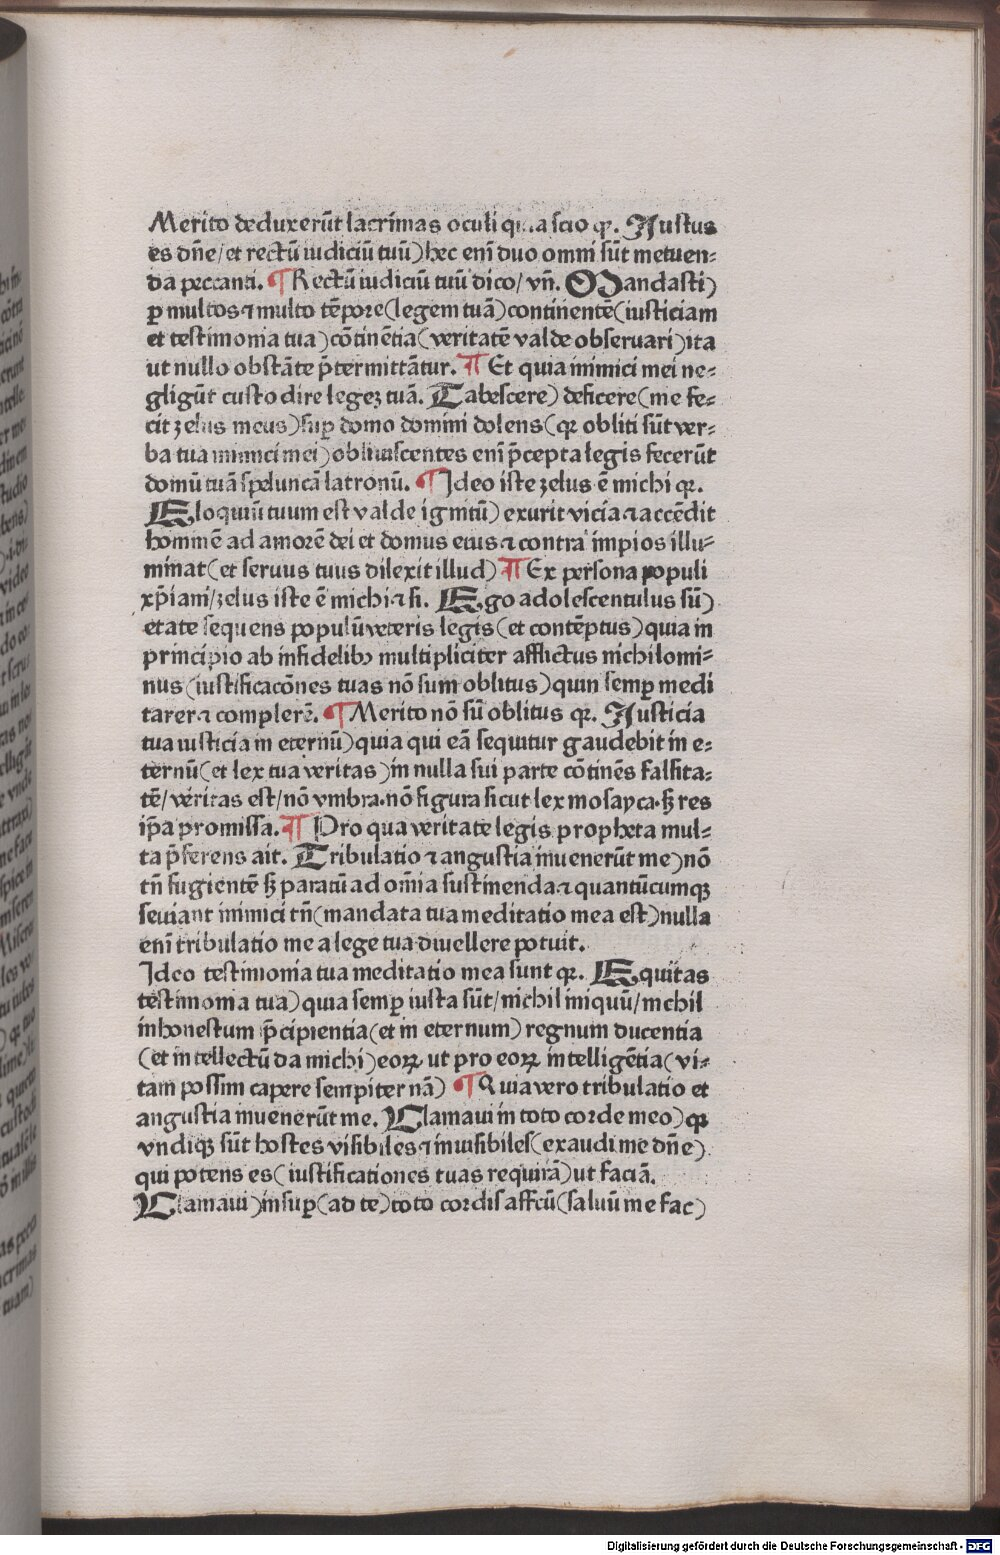 Merito deduxerūt lacrimas oculi scio qꝛ. Justus
es dn̄e/et rectū iudiciū tuū)hec enī duo omni sūt metuen⸗
da peccanti. ¶Rectū iudiciū tuū dico/vn̄. Mandasti)
ꝑ multos ⁊ multo tēpore(legem tuā)continentē(iusticiam
et testimonia tua)cōtinētia(veritatē valde obseruari)ita
ut nullo obstāte p̄termittātur. ¶ Et quia inimici mei ne⸗
gligūt custodire legeꝫ tuā. Tabescere)deficere(me fe⸗
cit zelus meus)suꝑ domo domini dolens(qꝛ obliti sūt ver⸗
ba tua inimici mei)obliuiscentes enī p̄cepta legis fecerūt
domū tuā speluncā latronū. ¶Ideo iste zelus ē michi qꝛ.
Eloquiū tuum est valde ignitū)exurit vicia ⁊ accēdit
hominē ad amorē dei et domus eius ⁊ contra impios illu⸗
minat(et seruus tuus dilexit illud)¶Ex persona populi
xp̄iani/zelus iste ē michi ⁊ si. Ego adolescentulus sū)
etate sequens populū veteris legis(et contēptus)quia in
principio ab infidelibꝫ multipliciter afflictus nichilomi⸗
nus(iustificacōnes tuas nō sum oblitus)quin semꝑ medi
tarer ⁊ complerē. ¶Merito nō sū oblitus qꝛ. Justicia
tua iusticia in eternū)quia qui eā sequitur gaudebit in e⸗
ternū(et lex tua veritas)in nulla sui parte cōtinēs falsita⸗
tē/veritas est/nō vmbra.nō figura sicut lex mosayca.sꝫ res
ip̄a promissa.¶ Pro qua veritate legis propheta mul⸗
ta p̄ferens ait. Tribulatio ⁊ angustia inuenerūt me)nō
tn̄ fugientē sꝫ paratū ad om̄ia sustinenda ⁊ quantūcumqꝫ
seuiant inimici tn̄(mandata tua meditatio mea est)nulla
enī tribulatio me a lege tua diuellere potuit.
Ideo testimonia tua meditatio mea sunt qꝛ. Equitas
testimonia tua)quia semꝑ iusta sūt/nichil iniquū/nichil
inhonestum p̄cipientia(et in eternum)regnum ducentia
(et intellectū da michi)eoꝝ ut pro eoꝝ intelligētia(vi⸗
tam possim capere sempiternā)¶Quia vero tribulatio et
angustia inuenerūt me. Clamaui in toto corde meo)qꝛ
vndiqꝫ sūt hostes visibiles ⁊ inuisibiles(exaudi me dn̄e)
qui potens es(iustificationes tuas requirā)ut faciā.
Clamaui)insuꝑ(ad te)toto cordis affcū(saluū me fac)
Digitalisierung gefördert durch die Deutsche Forschungsgemeinschaft - DFG